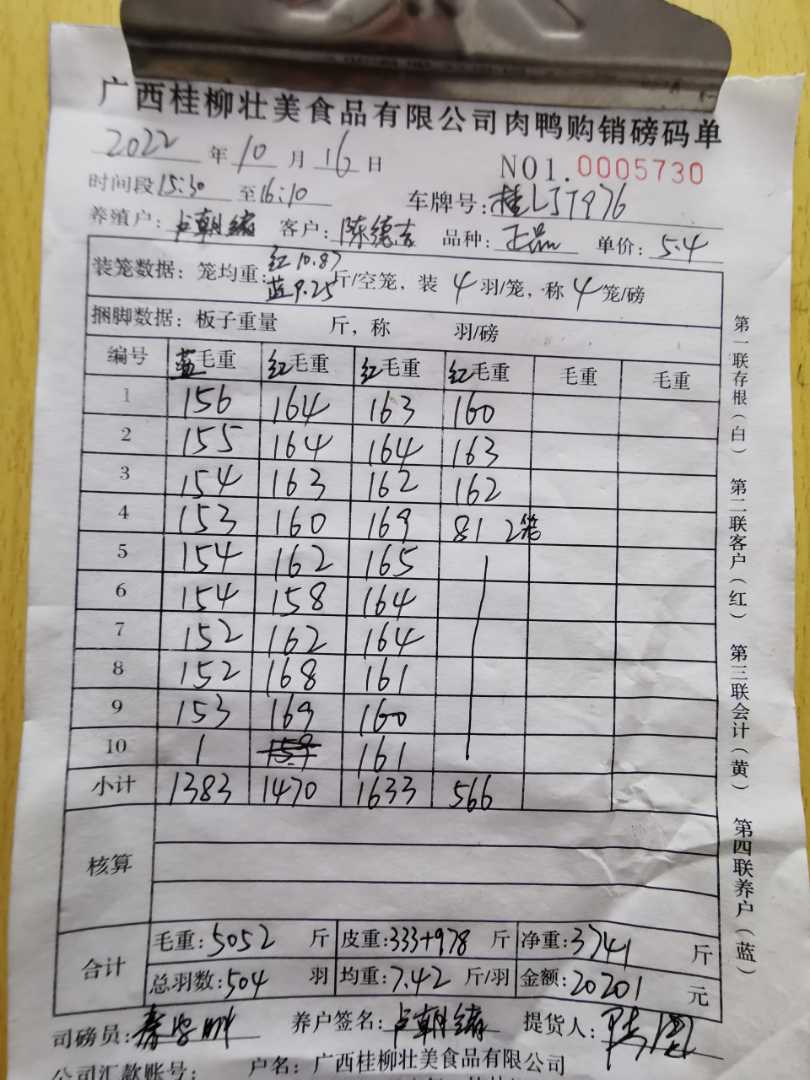 广西桂柳壮美食品有限公司肉鸭购销磅码单
2022 年 10 月 16 日 NO1.0005730
时间段 15:30 至 16:10 车牌号:桂LJT976
养殖户:卢朝绪 客户:陈德吉 品种:正品 单价:5.4
装笼数据:笼均重:红10.87 蓝9.25 斤/空笼,装 4 羽/笼,称 4 笼/磅
捆脚数据:板子重量 斤,称 羽/磅
编号 蓝毛重 红毛重 红毛重 红毛重 毛重 毛重
1 156 164 163 160
2 155 164 164 163
3 154 163 162 162
4 153 160 169 81 2笼
5 154 162 165
6 154 158 164
7 152 162 164
8 152 168 161
9 153 169 160
10 161
小计 1383 1470 1633 566
核算
合计
毛重:5052 斤 皮重:333+978 斤 净重:3741 斤
总羽数:504 羽 均重:7.42 斤/羽 金额:20201 元
司磅员: 养户签名:卢朝绪 提货人:
公司汇款账号: 户名:广西桂柳壮美食品有限公司
第一联存根(白) 第二联客户(红) 第三联会计(黄) 第四联养户(蓝)